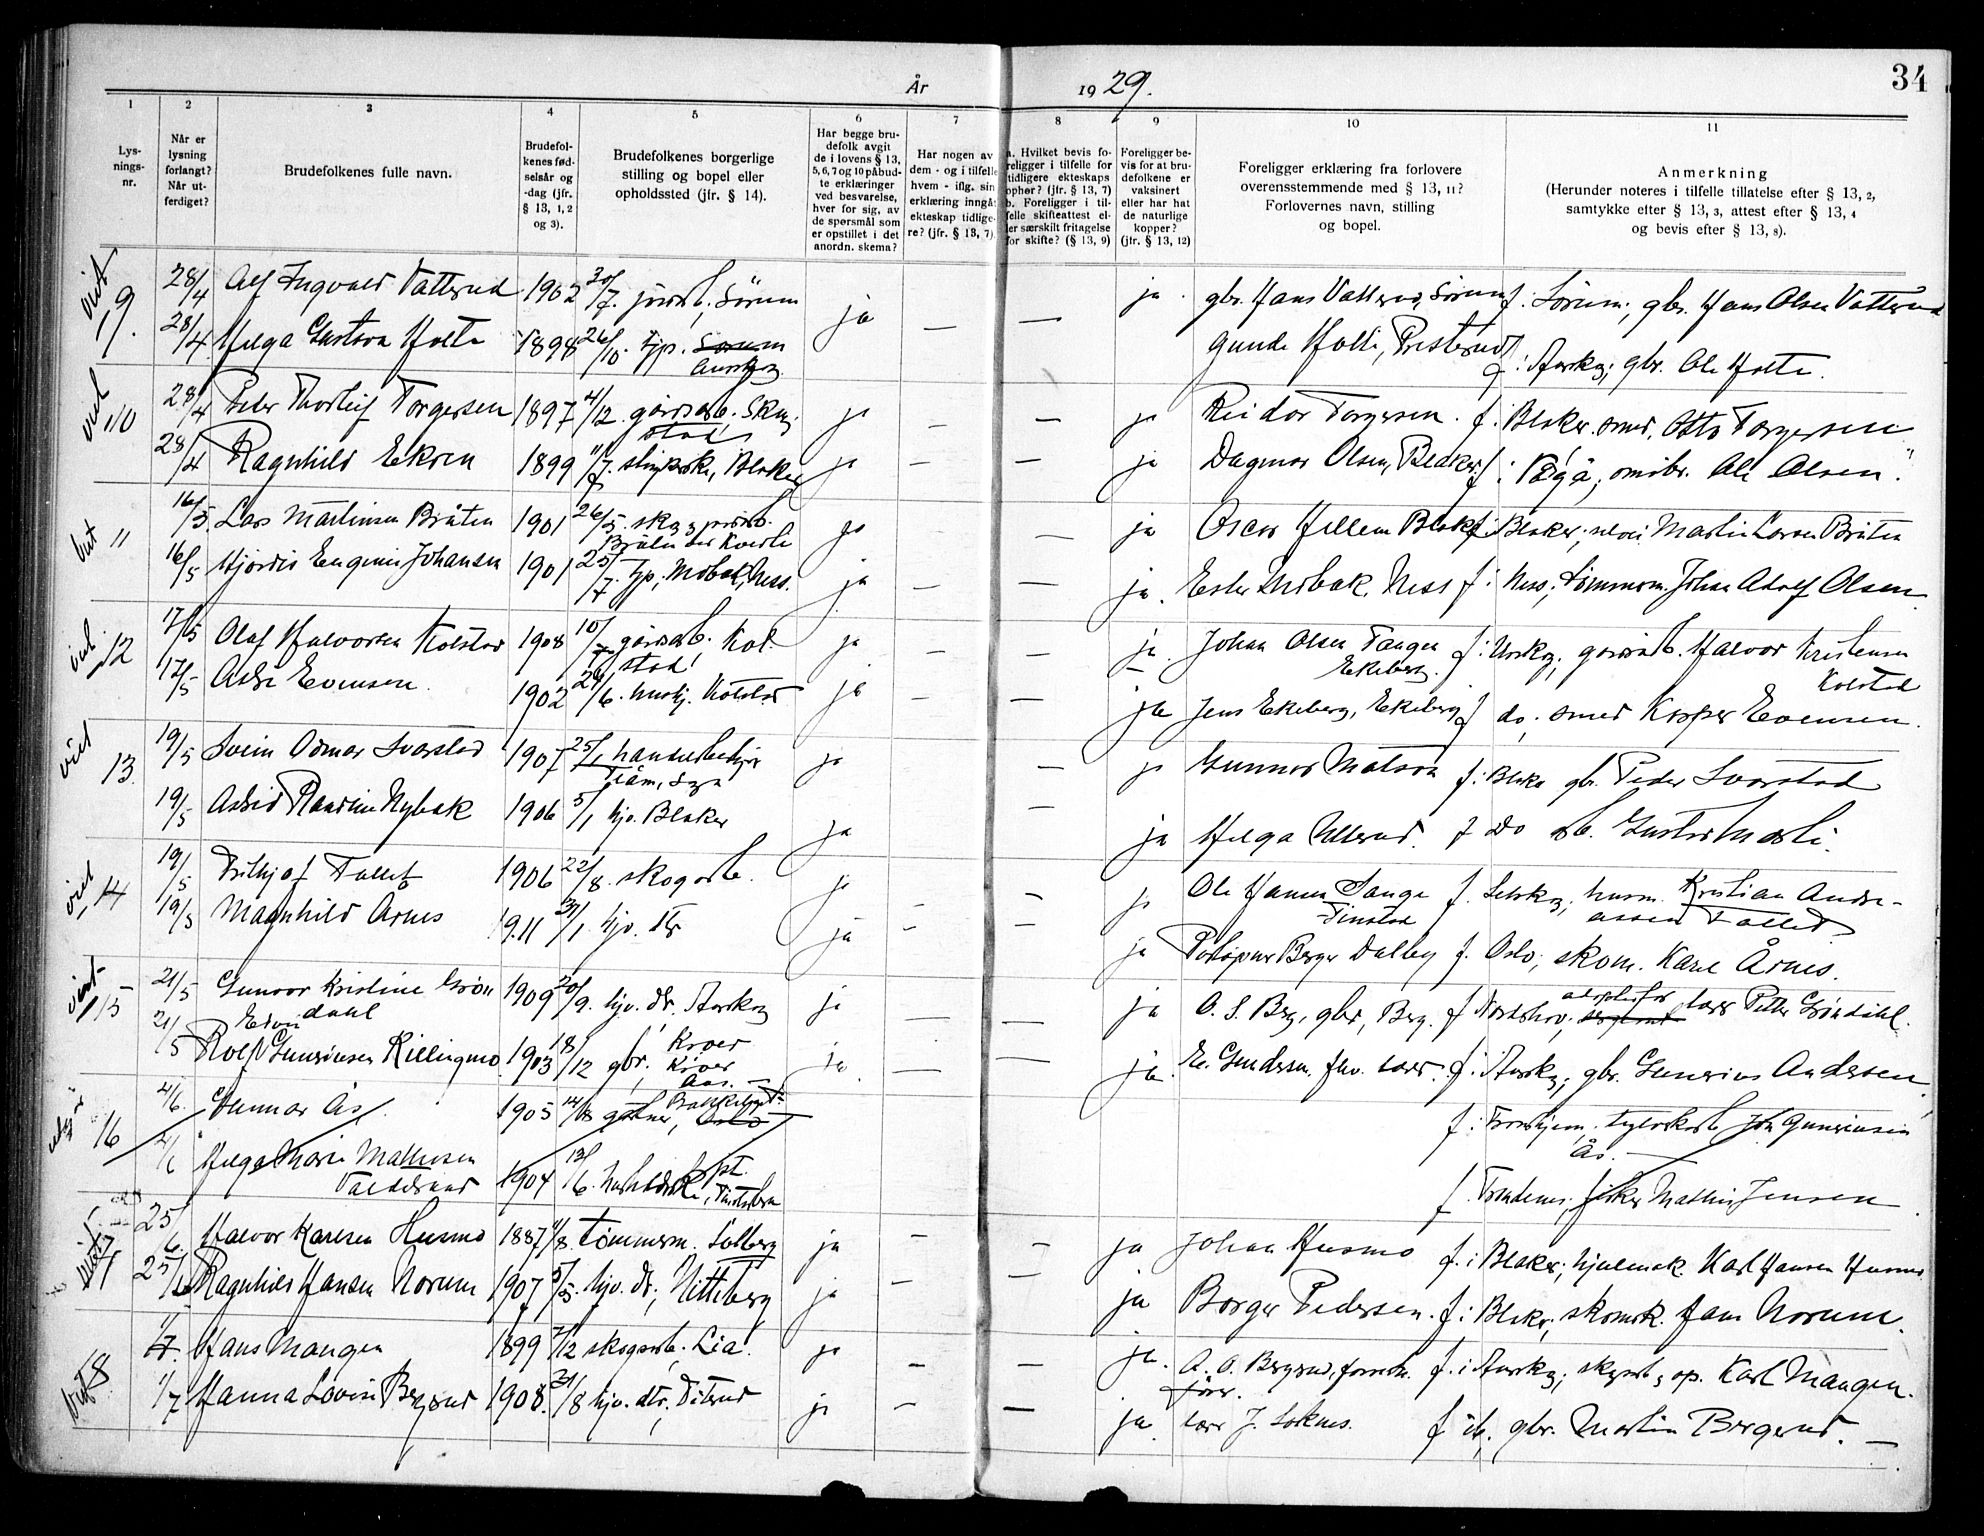 År 1929.
34
1
2
3
4
5
6
7
8
9
10
11
Lys-
nings-
nr.
Når er
lysning
forlangt?
Når ut-
ferdiget?
Brudefolkenes fulle navn.
Brudefol-
kenes fød-
selsår og
-dag (jfr.
§ 13, 1, 2
og 3).
Brudefolkenes borgerlige
stilling og bopel eller
opholdssted (jfr. § 14).
Har begge bru-
defolk avgit
de i lovens § 13,
5, 6, 7 og 10 påbud-
te erklæringer
ved besvarelse,
hver for sig, av
de spørsmål som
er opstillet i det
anordn. skema?
Har nogen av
dem - og i tilfelle
hvem - iflg. sin
erklæring inngåt
ekteskap tidlige-
re? (jfr. § 13, 7)
a. Hvilket bevis fo-
religger i tilfelle for
tidligere ekteskaps
ophør? (jfr. § 13, 7)
b. Foreligger i til-
felle skifteattest el-
ler særskilt fritagelse
for skifte? (§ 13, 9)
Foreligger be-
vis for at bru-
defolkene er
vaksinert
eller har hat
de naturlige
kopper?
(jfr. § 13, 12)
Foreligger erklæring fra forlovere
overensstemmende med § 13, 11?
Forlovernes navn, stilling
og bopel.
Anmerkning
(Herunder noteres i tilfelle tillatelse efter § 13, 2,
samtykke efter § 13, 3, attest efter § 13, 4
og bevis efter § 13, 8).
viet 9. 28/4 Alf Ingvald Vatterud 1902 30/7. jordb., Sörum ja — — ja gbr. Hans Vatterud, Sörum f. i Sörum; gbr. Hans Olsen Vatterud
28/4 Helga Gustava Holte 1898 26/10. tjp. Sörum
Aurskog
Gunda Holte, Presterud f. i Aurskog; gbr. Ole Holte.
viet 10 28/4 Peder Thorleif Torgersen 1897 4/12. gårdsarb., Skog-
stad
ja — — ja Reidar Torgersen. f. i Blaker. smed. Otto Torgersen
28/4 Ragnhild Ekren 1899 11/7. Blaker ja — — ja Dagmar Olsen, Blaker. f. i Vågå; Ole Olsen.
viet 11 16/5. Lars Martinsen Bråten 1901 26/5. skog
Bråten
ja — — ja Oscar Hellem Blaker f. i Blaker; Martin Larsen Bråten
16/5 Hjördis Eugenie Johansen 1901 25/7. tjp, Mobak, Ness. ja — — ja. Ester Mobak, Ness f. i Ness; tömmerm. Johan Adolf Olsen
viet 12 17/5 Olaf Halvorsen Kolstad 1908 10/7 gårdsarb. Kol-
stad
ja — — ja Johan Olsen Tangen
Ekeberg.
f. i Aurskog; gårdsarb. Halvor Kristensen
Kolstad
17/5 Aase Evensen. 1902 29/6. hush. Kolstad ja — — ja Jens Ekeberg, Ekeberg f. do; smed Kasper Evensen.
viet 13. 19/5 Svein Odmar Svarstad 1907 25/1 handelsbetjen
ja — ja Gunnar Matson f. i Blaker gbr. Peder Svarstad
19/5 Astrid Randine Nybak 1906 5/1 hjv. Blaker ja — ja Helga Ullerud. f. do arb. Gustav
viet 14 19/5 Fritjof Tallet 1906 22/8. skogarb. ja — — ja Ole Hansen Sange
Finstad
f. Setskog; husm. Kristian Andre-
assen Tallet
19/5 Magnhild Årnes 1911 31/1. hjv. dtr ja — — ja Berger Dalby f. Oslo; skom. Karl Årnes.
viet 15 21/5 Gunvor Kristine Grön-
dahl
1909 20/9. hjv. dtr. Aurskog ja — — ja O. S. Berg, gbr, Berg. f. Nordstrv; adoptivfar lærer Petter Gröndahl.
21/5 Rolf Gunerinsen Killingmo 1903 18/12 gbr., Kroer
Kroer
Aas. —
ja. — — ja. E. Gundersen, fhv. lærer. f. i Aurskog; gbr. Gunerius Andersen
16 4/6. Gunnar Ås 1905 14/8 gartner, Oslo f. i Trondhjem, Joh Gunerinsen
Ås. —
4/6 Helga Marie Mathisen
1904 13/6. pt. f. Trondenes; fisker Mathis Jensen
viet 17 25/6 Halvor Karlsen Husmo 1887 11/8. tömmerm. Solberg ja — — ja Johan Husmo f. i Blaker; hjulmak. Karl Hansen Husmo
25/6 Ragnhild Hansen Norum 1907 5/5. hjv. dtr.; Hitteberg ja — — ja Borger Pedersen. f. i Blaker; skomk. Hans Norum.
viet 18 1/7. Hans Mangen 1899 7/12 skogsarb., Lia. ja — — ja. A. O. Bergerud, forretn. f. i Aurskog; skogsarb. Karl Mangen.
förer.
1/7 Hanna Lovise Bergerud 1908. 21/8 hjv. dtr, Diterud ja — — ja. lærer J. Loknes. f. ib. gbr. Martin Bergerud. —